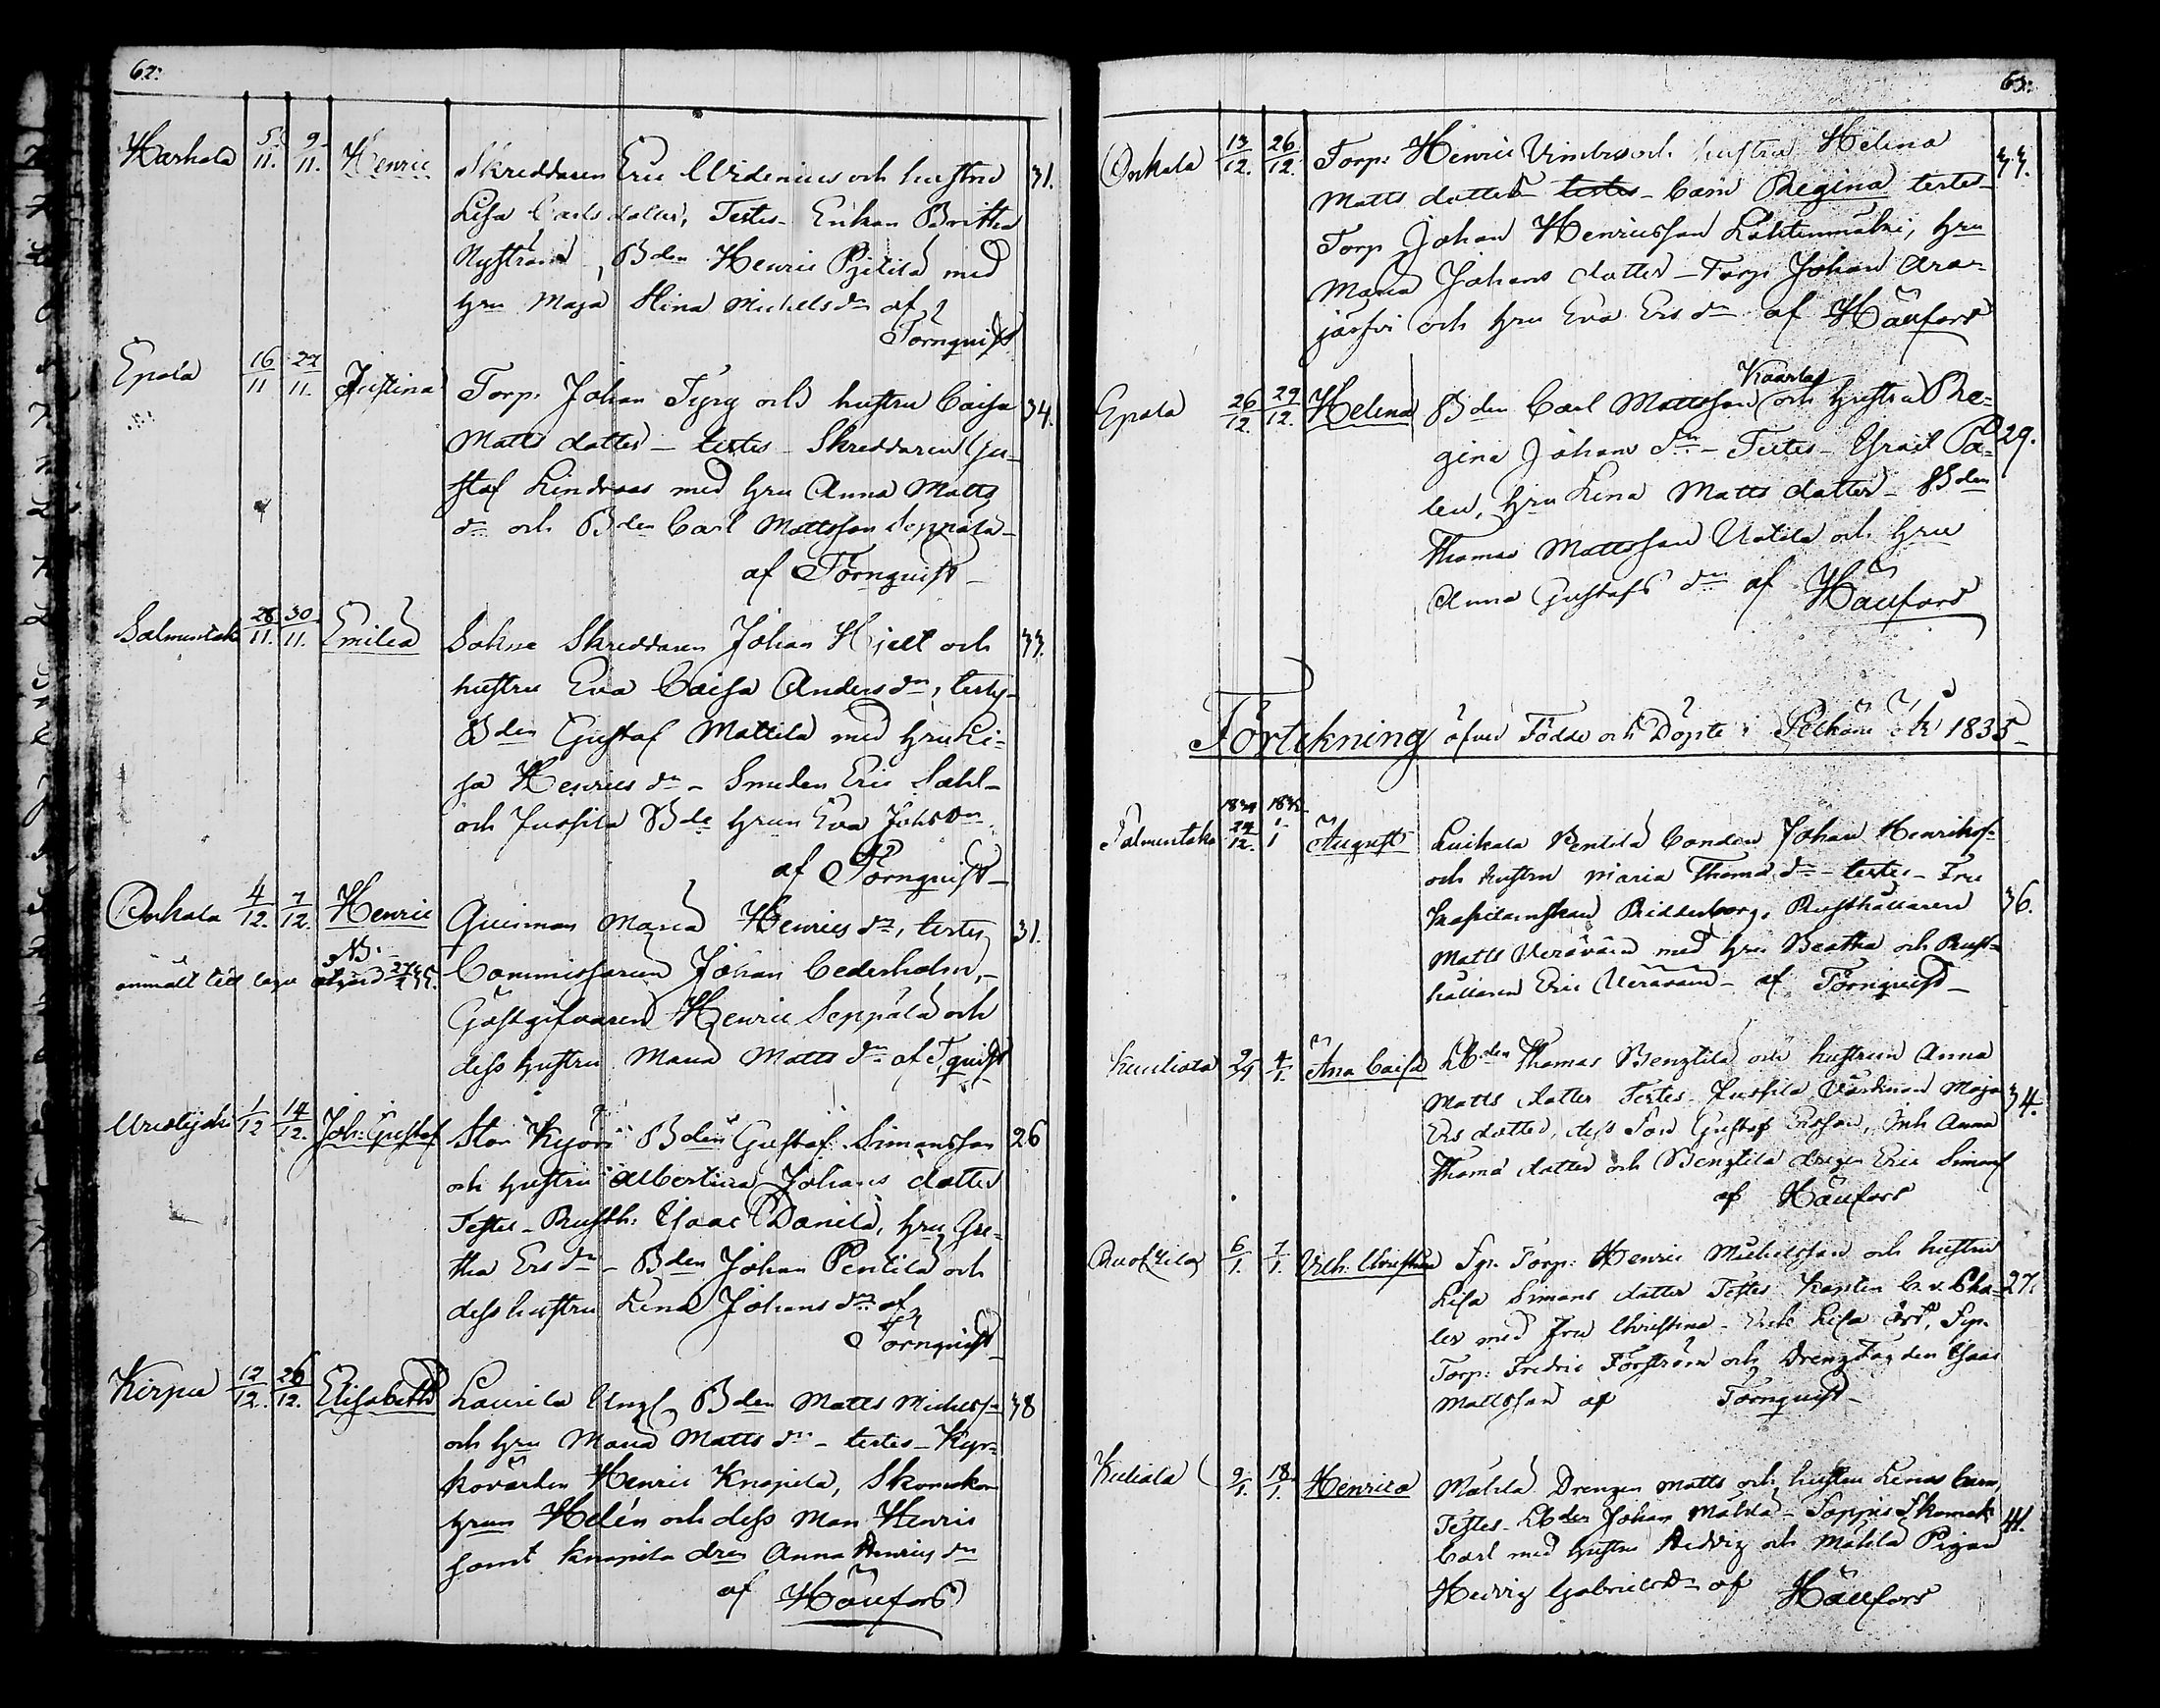 62.
Harhala 5/11. 9/11. Henric Skreddaren Eric Widenius och hustru 31.
Lisa Carls dotter, Testes Enkan Britha
Nyström, Bden Henric Pijtilä med
hru Maja Stina Michels dr af
Törnquist
Epala 16/11 /11. Justina Torp. Johan Tyry och hustru Caisa 34.
Matts dotter – testes – Skreddaren Gu-
staf Lindroos med hru Anna Matts
dr och Bden Carl Mattsson Seppälä –
af Törnquist –
Salmentaka 28/11. 30/11. Emilia Sohne Skreddaren Johan Hjelt och 33.
hustru Eva Caisa Anders dr, testes –
Bden Gustaf Mattila med hru Li-
sa Henrics dr – Smeden Eric Sahl-
och Jussila Bde hrun Eva Johs Dr
af Törnquist –
Onkala 4/12. 7/12. Henric Qvinnan Maria Henrics dr, testes 31.
NB.
anmält till laga åtgärd Commissarien Johan Cederholm, –
Gästgifvaren Henric Seppälä och
dess hustru Maria Matts dr af Tquist
1/12 14/12. Joh: Gustaf Stor Kyörä Bden Gustaf Simonsson 26
och hustru Albertina Johans dotter
Testes – Rusth: Isaac Danila, hru Gre-
tha Ers dr – Bden Johan Pentila och
dess hustru Lena Johans dr af
Törnquist
Kirpu 12/12. 26/12. Elisabeth Laurila Bden Matts Michelss- 38
och hru Maria Matts dr – testes – Kyr-
kovärden Henric Knapila, Skomakar
hrun Helén och dess man Henric
samt Knapila Anna Henrics dr
af Häufors
63.
Onkala 13/12. 26/12. Torp: Henric och hustru Helena 33.
Matts dotter testes – barn Regina testes –
Torp Johan Henricsson Lähtenmäki, hru
Maria Johans dotter – Torp. Johan Ara-
järfvi och hru Eva Ers dr af Häufors
Kaarla
Epala 26/12. 29/12. Helena Bden Carl Mattsson och hustru Re- 29.
gina Johans dr – Testes – Israel Pa-
len, hru Lena Matts dotter – Bden
Thomas Mattsson Uotila och hru
Anna Gustafs dr af Häufors
Förtekning öfver Födde och Döpte i Pelkäne År 1835
1834 1835
Salmentaka 24/12. 1/1 August Bonden Johan Henrikss- 36.
och hustru Maria Thomæ dr – testes – Fru
Kapitainskan Ridderborg, Rusthållaren
Matts Veräväin med hru Beatha och Rust-
hållaren Eric Veräväin – af Törnquist –
Kuuliala 2/1 4/1. Ana Caisa LBden Thomas Benztilä och hustrun Anna 34.
Matts dotter Testes Jussila Värdinnan Maja
Ers dotter, dess Son Gustaf Ersson, Inh Anna
Thomæ dotter och Benztila drengen Eric Simons
af Häufors
6/1. 7/1. Vilh: Christina Torp: Henric Michelsson och hustru 27.
Lisa Simons dotter Testes Kapten C. v. Cha-
ler med Fru Christina – Lisa
Torp: Fredric Forström och Drengen Isaac
Mattsson af Törnquist –
Kuliala 9/1. 18/1. Henrica Mälila Drengen Matts och hustru Lenas barn, 41.
Testes – LBden Johan Mälila – Soppis Skomak:
Carl med hustru Hedvig och Mälila Pigan
Hedvig Gabriels Dr af Häufors